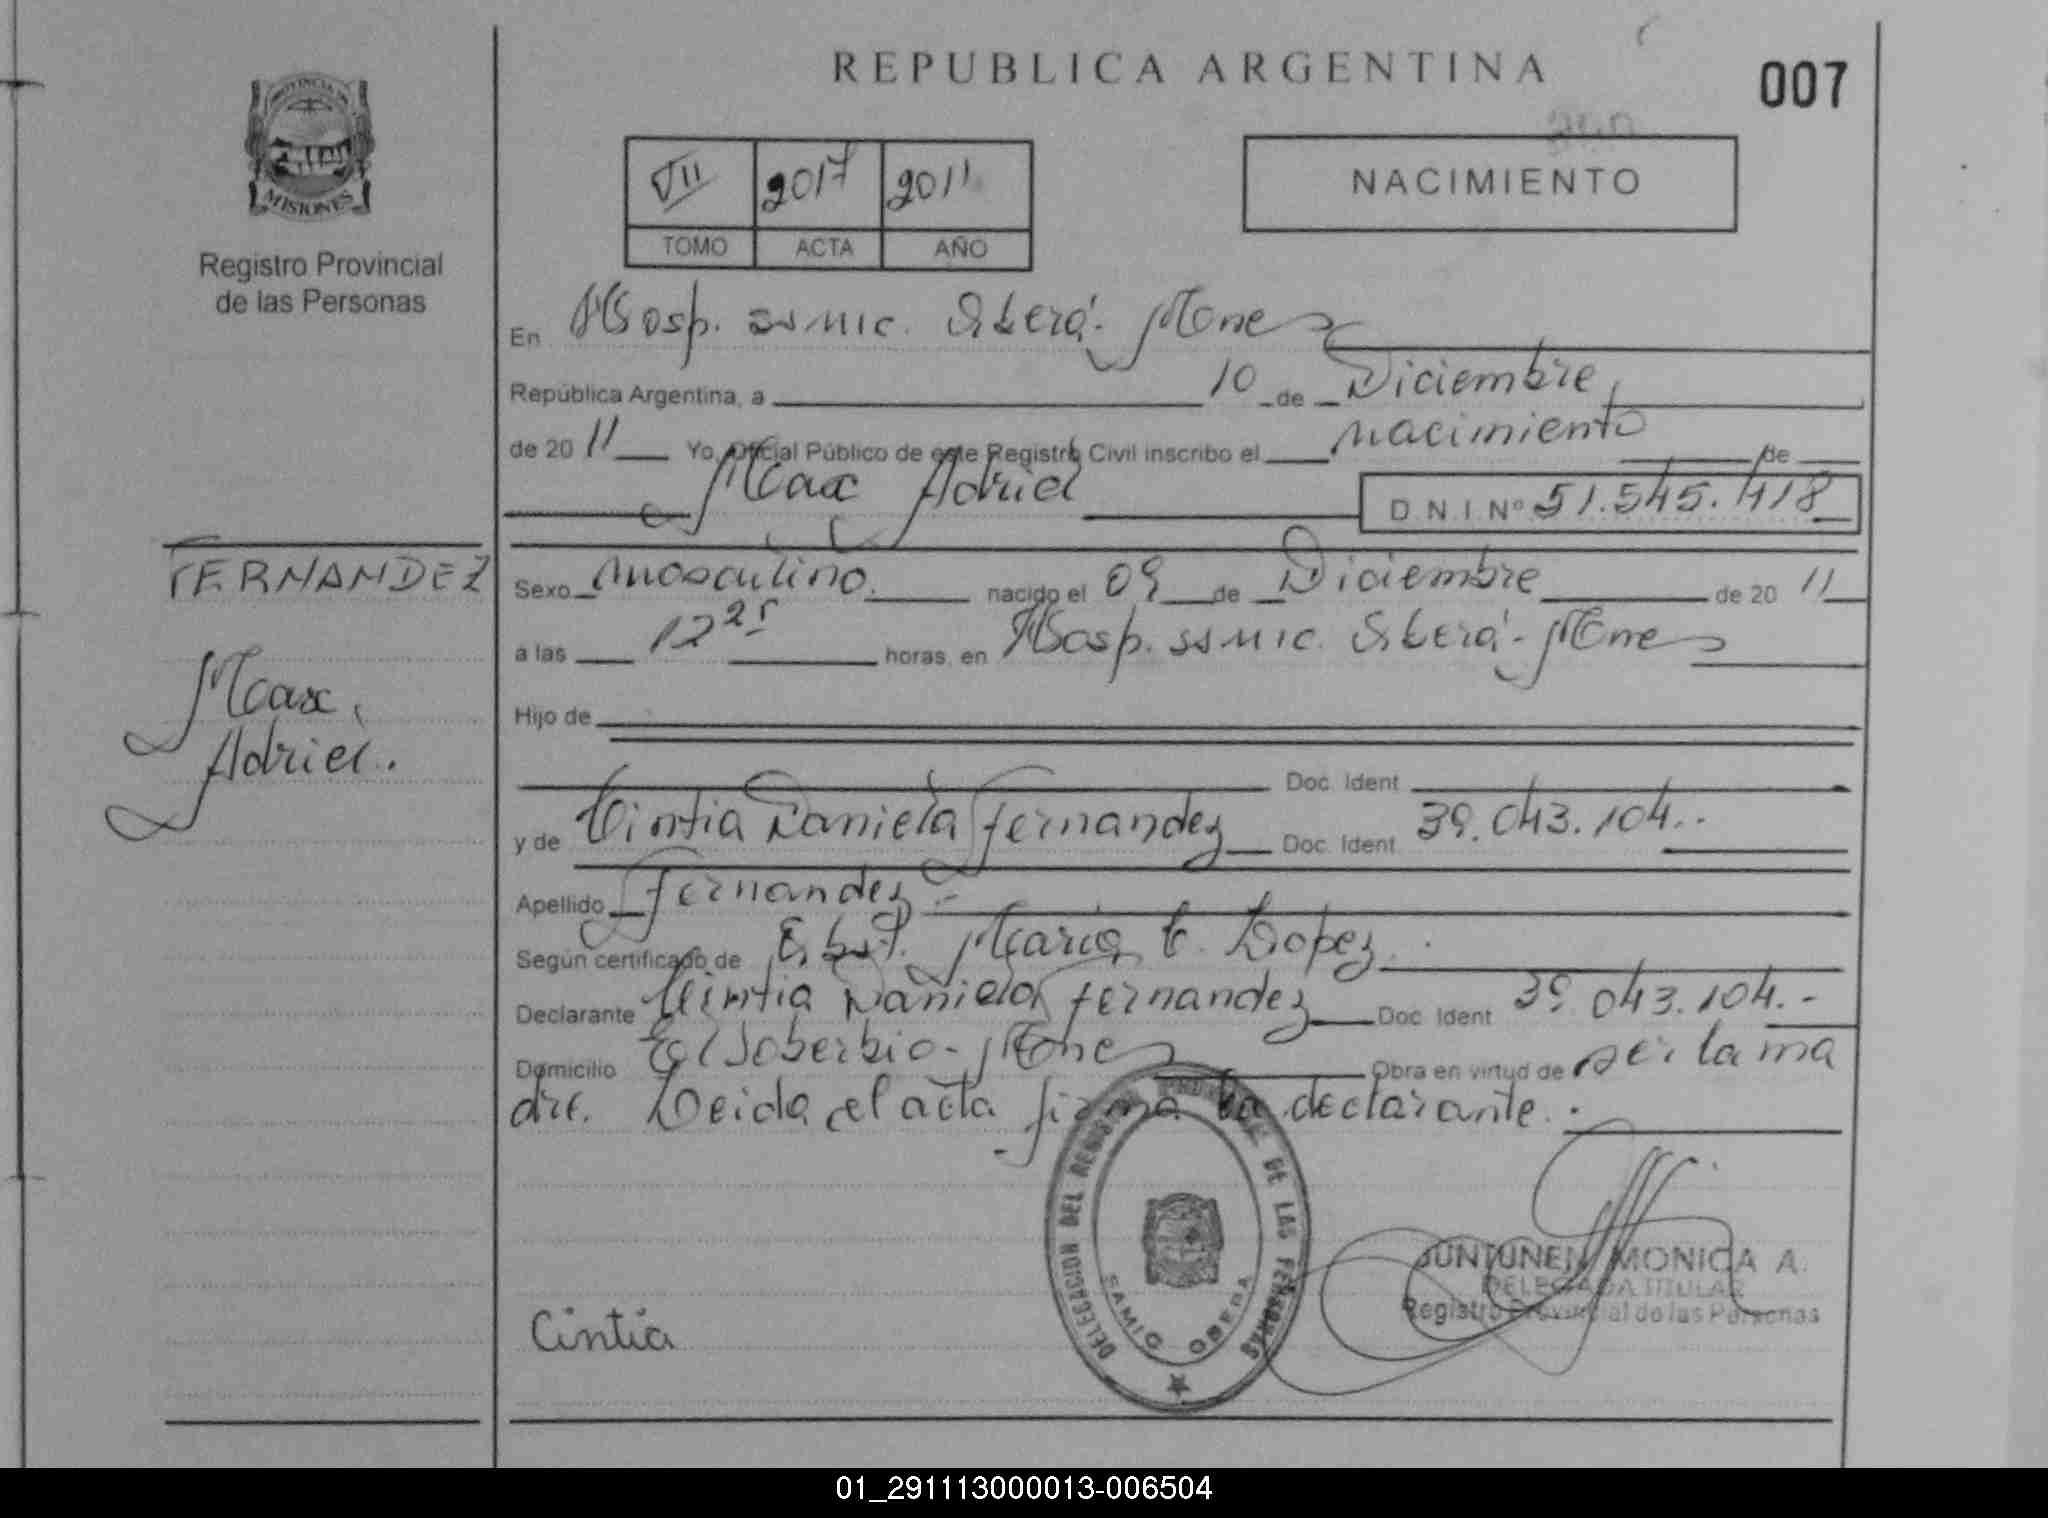 REPUBLICA ARGENTINA
007
PROVINCIA DE
MISIONES
Registro Provincial
de las Personas
VII 2017 2011
TOMO ACTA AÑO
NACIMIENTO
En Hosp. SAMIC. Oberá - Mnes
República Argentina, a 10 de Diciembre
de 20 11 Yo, Oficial Público de este Registro Civil inscribo el nacimiento de
Max Adriel D.N.I. Nº 51.545.418
FERNANDEZ
Max
Adriel.
Sexo masculino. nacido el 09 de Diciembre de 20 11
a las 12 25 horas, en Hosp. SAMIC. Oberá - Mnes
Hijo de
Doc. Ident
y de Cintia Daniela Fernandez Doc. Ident 39.043.104.-
Apellido Fernandez.-
Según certificado de Obst. Maria C. Lopez.
Declarante Cintia Daniela Fernandez Doc. Ident 39.043.104.-
Domicilio El Soberbio - Mnes Obra en virtud de ser la ma
dre. Leida el acta firma la declarante.-
DELEGACION DEL REGISTRO PROVINCIAL DE LAS PERSONAS
SAMIC OBERA
JUNTUNEN MONICA A.
DELEGADA TITULAR
Registro Provincial de las Personas
Cintia
01_291113000013-006504